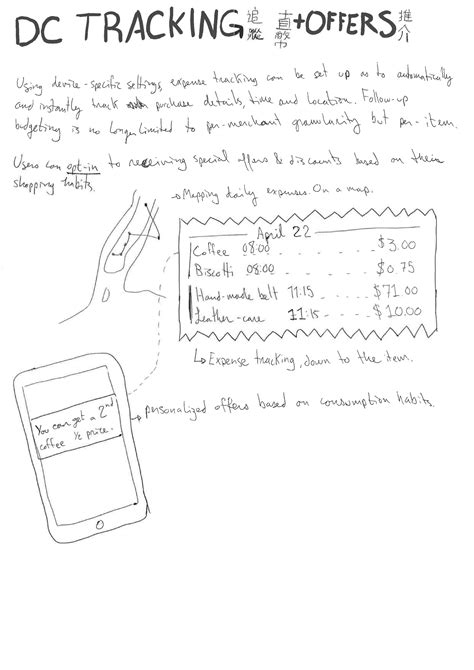 DC TRACKING 追蹤 + OFFERS 推介
Using device-specific settings, expense tracking can be set up as to automatically
and instantly track purchase details, time and location. Follow-up
budgeting is no longer limited to per-merchant granularity but per-item.
Users can opt-in to receiving special offers & discounts based on their
shopping habits.
→ Mapping daily expenses. On a map.
April 22
Coffee 08:00 . . . . . $3.00
Biscotti 08:00 . . . . . $0.75
Hand-made belt 11:15 . . . . . $71.00
Leather-care 11:15 . . . . $10.00
↳ Expense tracking, down to the item.
You can get a 2nd
coffee ½ price.
→ personalized offers based on consumption habits.